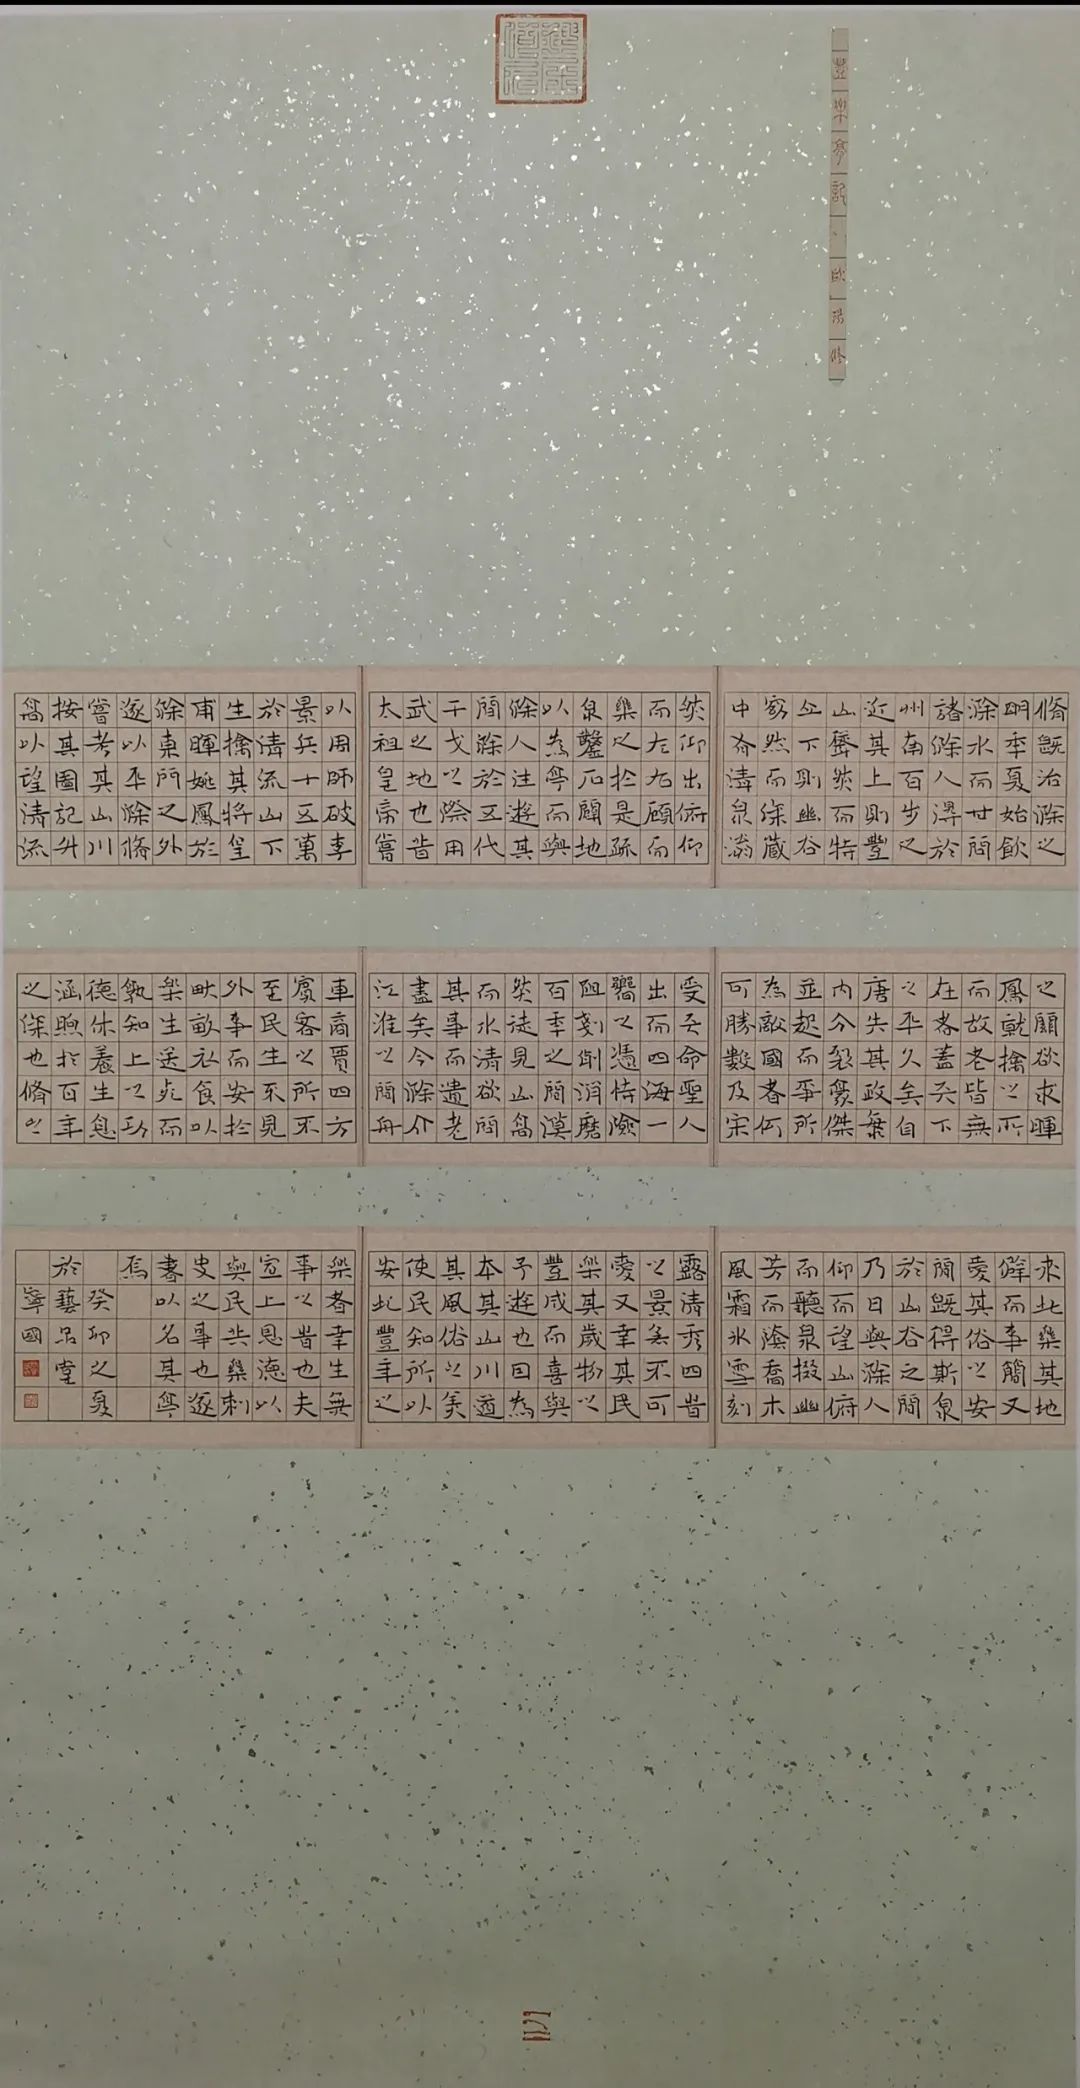 豐樂亭記、欧陽修
脩既治滁之
明年夏始飲
滁水而甘問
諸滁人得於
州南百步之
近其上則豐
山聳然而特
立下則幽谷
窈然而深藏
中有清泉滃
然仰出俯仰
而左右顧而
樂之於是疏
泉鑿石闢地
以為亭而與
滁人往遊其
間滁於五代
干戈之際用
武之地也昔
太祖皇帝嘗
以周師破李
景兵十五萬
於清流山下
生擒其將皇
甫暉姚鳳於
滁東門之外
遂以平滁脩
嘗考其山川
按其圖記升
高以望清流
之關欲求暉
鳳就擒之所
而故老皆無
在者蓋天下
之平久矣自
唐失其政
内分裂豪傑
並起而爭所
為敵國者何
可勝數及宋
受天命聖人
出而四海一
嚮之憑恃險
阻剗削消磨
百年之間漠
然徒見山高
而水清欲問
其事而遺老
盡矣今滁介
江淮之間舟
車商賈四方
賓客之所不
至民生不見
外事而安於
畎畝衣食以
樂生送死而
孰知上之功
德休養生息
涵煦於百年
之深也脩之
來此樂其地
僻而事簡又
愛其俗之安
閒既得斯泉
於山谷之間
乃日與滁人
仰而望山俯
而聽泉掇幽
芳而蔭喬木
風霜冰雪刻
露清秀四旹
之景無不可
愛又幸其民
樂其歲物之
豐成而喜與
予遊也因為
本其山川道
其風俗之美
使民知所以
安此豐年之
樂者幸生無
事之旹也夫
宣上恩德以
與民共樂刺
史之事也遂
書以名其亭
焉
癸卯之夏
於藝品堂
寧國